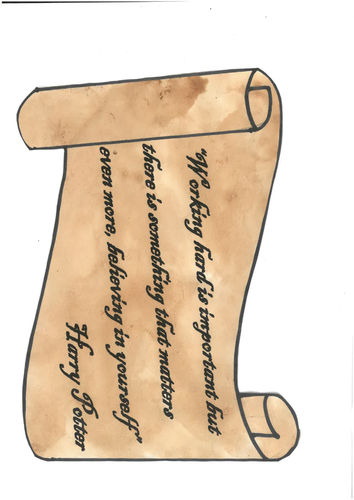 "Working hard is important but
there is something that matters
even more, believing in yourself"
Harry Potter